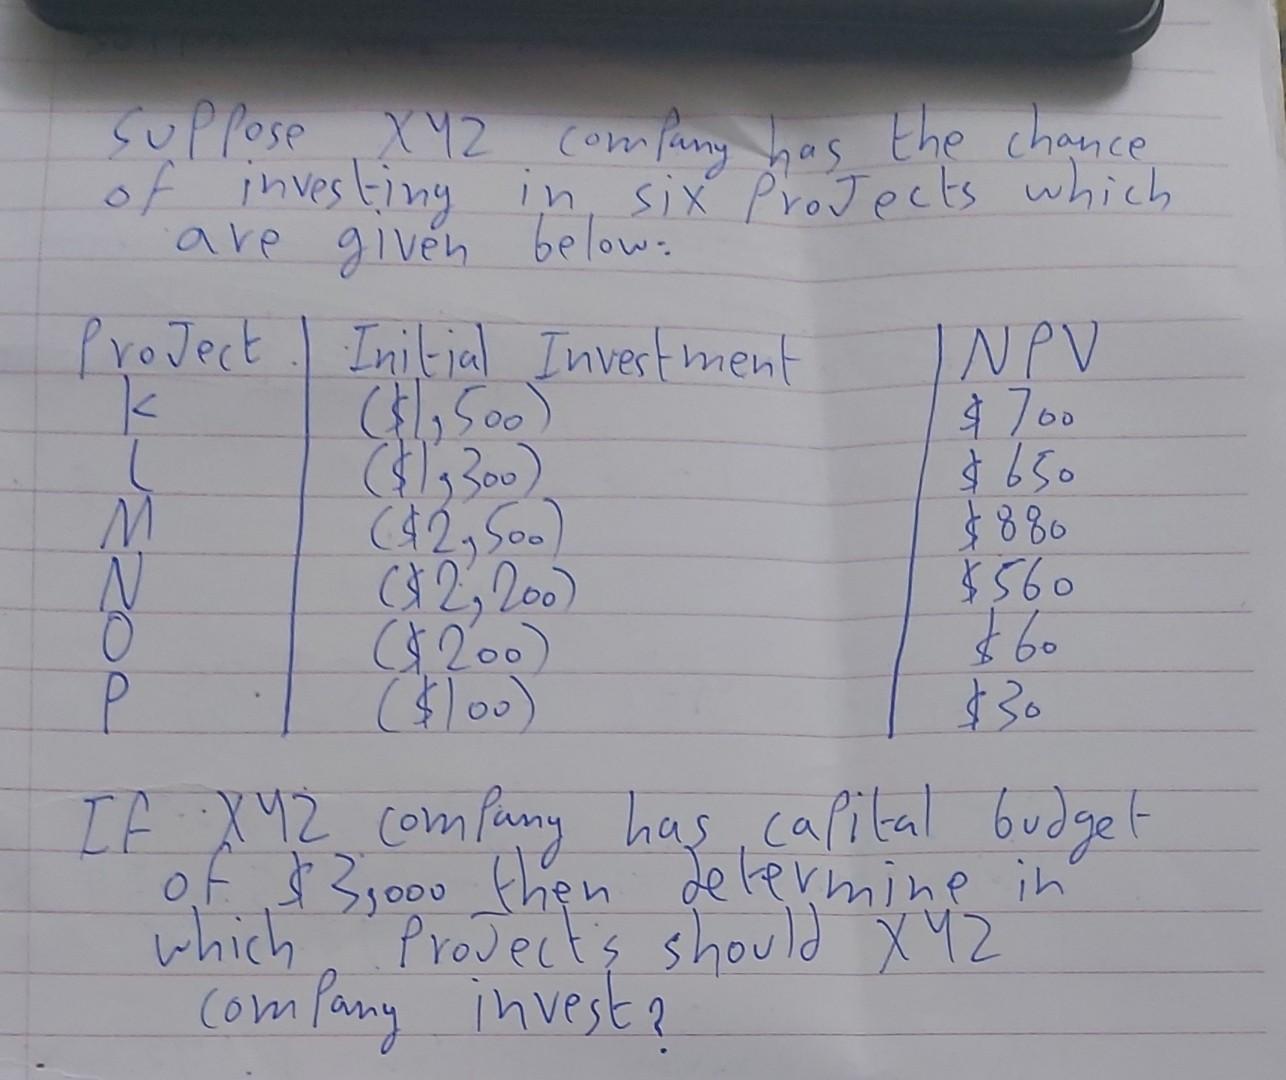 Suppose XYZ company has the chance
of investing in six Projects which
are given below:
Project | Initial Investment | NPV
K ($1,500) $700
L ($1,300) $650
M ($2,500) $880
N ($2,200) $560
O ($200) $60
P ($100) $30
If XYZ company has capital budget
of $3,000 then determine in
which Projects should XYZ
company invest?